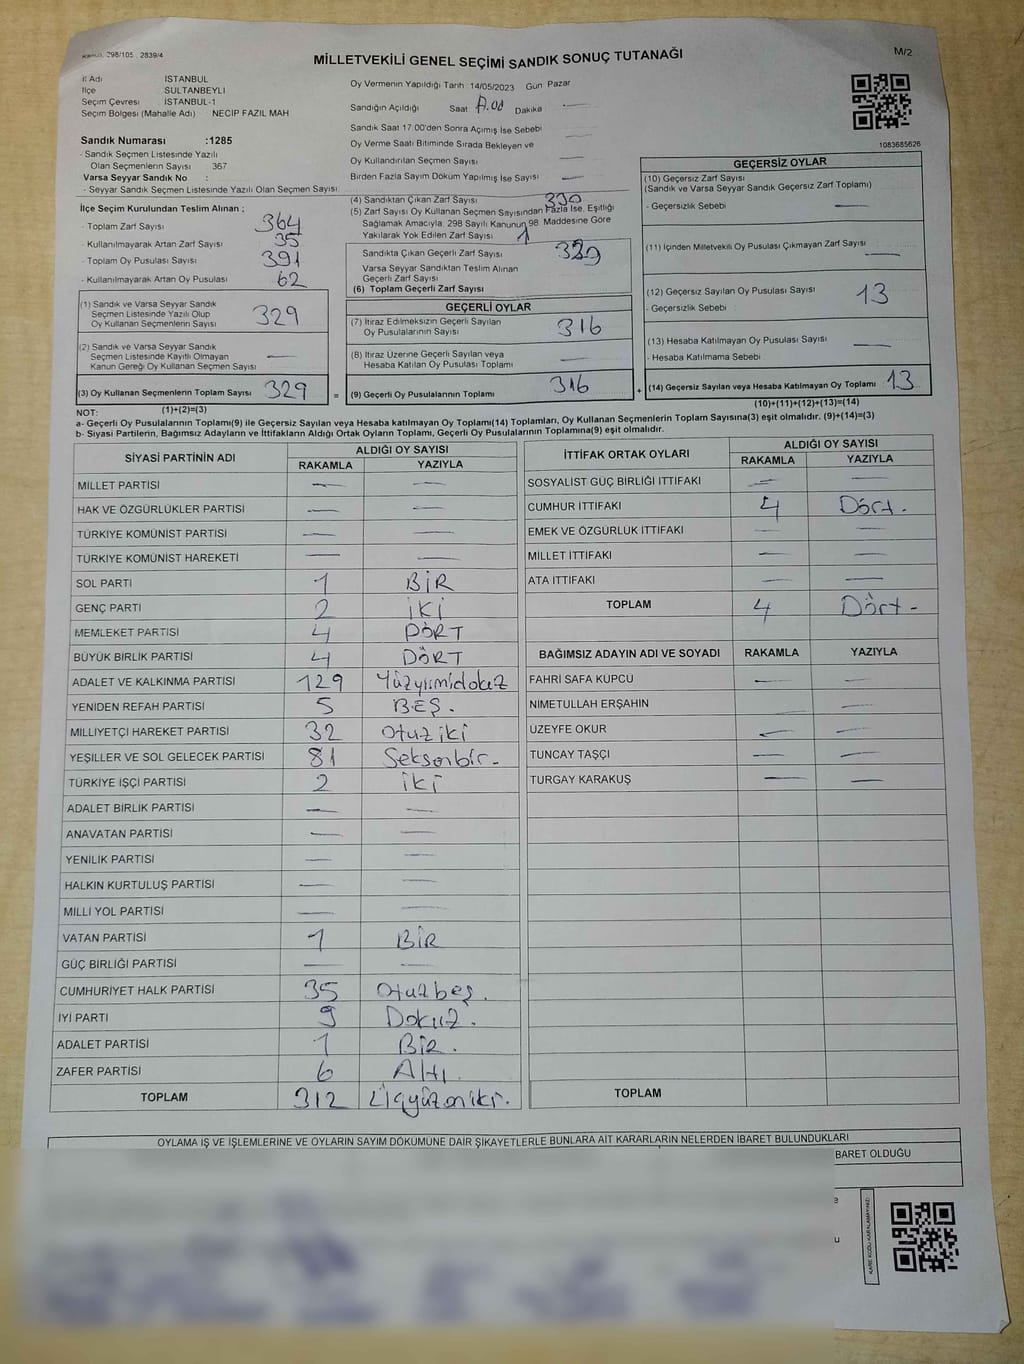 Kanun. 298/105 2839/4
MİLLETVEKİLİ GENEL SEÇİMİ SANDIK SONUÇ TUTANAĞI
M/2
İl Adı İSTANBUL
İlçe SULTANBEYLİ
Seçim Çevresi İSTANBUL-1
Seçim Bölgesi (Mahalle Adı) NECİP FAZIL MAH
Sandık Numarası :1285
- Sandık Seçmen Listesinde Yazılı
Olan Seçmenlerin Sayısı : 367
Varsa Seyyar Sandık No :
- Seyyar Sandık Seçmen Listesinde Yazılı Olan Seçmen Sayısı
Oy Vermenin Yapıldığı Tarih 14/05/2023 Gün Pazar
Sandığın Açıldığı Saat Dakika —
Sandık Saat 17.00'den Sonra Açımış İse Sebebi —
Oy Verme Saati Bitiminde Sırada Bekleyen ve
Oy Kullandırılan Seçmen Sayısı —
Birden Fazla Sayım Döküm Yapılmış İse Sayısı —
1083685626
İlçe Seçim Kurulundan Teslim Alınan ;
- Toplam Zarf Sayısı 364
- Kullanılmayarak Artan Zarf Sayısı 35
- Toplam Oy Pusulası Sayısı 391
- Kullanılmayarak Artan Oy Pusulası 62
(1) Sandık ve Varsa Seyyar Sandık
Seçmen Listesinde Yazılı Olup
Oy Kullanan Seçmenlerin Sayısı 329
(2) Sandık ve Varsa Seyyar Sandık
Seçmen Listesinde Kayıtlı Olmayan
Kanun Gereği Oy Kullanan Seçmen Sayısı —
(3) Oy Kullanan Seçmenlerin Toplam Sayısı 329
(1)+(2)=(3)
(4) Sandıktan Çıkan Zarf Sayısı 330
(5) Zarf Sayısı Oy Kullanan Seçmen Sayısından Fazla İse, Eşitliği
Sağlamak Amacıyla, 298 Sayılı Kanunun 98. Maddesine Göre
Yakılarak Yok Edilen Zarf Sayısı 1
Sandıkta Çıkan Geçerli Zarf Sayısı 329
Varsa Seyyar Sandıktan Teslim Alınan
Geçerli Zarf Sayısı
(6) Toplam Geçerli Zarf Sayısı
GEÇERLİ OYLAR
(7) İtiraz Edilmeksizin Geçerli Sayılan
Oy Pusulalarının Sayısı 316
(8) İtiraz Üzerine Geçerli Sayılan veya
Hesaba Katılan Oy Pusulası Toplamı —
= (9) Geçerli Oy Pusulalarının Toplamı 316
GEÇERSİZ OYLAR
(10) Geçersiz Zarf Sayısı
(Sandık ve Varsa Seyyar Sandık Geçersiz Zarf Toplamı)
- Geçersizlik Sebebi —
(11) İçinden Milletvekili Oy Pusulası Çıkmayan Zarf Sayısı —
(12) Geçersiz Sayılan Oy Pusulası Sayısı 13
- Geçersizlik Sebebi
(13) Hesaba Katılmayan Oy Pusulası Sayısı —
- Hesaba Katılmama Sebebi
+ (14) Geçersiz Sayılan veya Hesaba Katılmayan Oy Toplamı 13
(10)+(11)+(12)+(13)=(14)
NOT:
a- Geçerli Oy Pusulalarının Toplamı(9) ile Geçersiz Sayılan veya Hesaba katılmayan Oy Toplamı(14) Toplamları, Oy Kullanan Seçmenlerin Toplam Sayısına(3) eşit olmalıdır. (9)+(14)=(3)
b- Siyasi Partilerin, Bağımsız Adayların ve İttifakların Aldığı Ortak Oyların Toplamı, Geçerli Oy Pusulalarının Toplamına(9) eşit olmalıdır.
SİYASİ PARTİNİN ADI ALDIĞI OY SAYISI
RAKAMLA YAZIYLA
MİLLET PARTİSİ — —
HAK VE ÖZGÜRLÜKLER PARTİSİ — —
TÜRKİYE KOMÜNİST PARTİSİ — —
TÜRKİYE KOMÜNİST HAREKETİ — —
SOL PARTİ 1 BİR
GENÇ PARTİ 2 İKİ
MEMLEKET PARTİSİ 4 DÖRT
BÜYÜK BİRLİK PARTİSİ 4 DÖRT
ADALET VE KALKINMA PARTİSİ 129 Yüzyirmidokuz
YENİDEN REFAH PARTİSİ 5 BEŞ.
MİLLİYETÇİ HAREKET PARTİSİ 32 Otuziki
YEŞİLLER VE SOL GELECEK PARTİSİ 81 Seksenbir-
TÜRKİYE İŞÇİ PARTİSİ 2 İKİ
ADALET BİRLİK PARTİSİ — —
ANAVATAN PARTİSİ — —
YENİLİK PARTİSİ — —
HALKIN KURTULUŞ PARTİSİ — —
MİLLİ YOL PARTİSİ — —
VATAN PARTİSİ 1 BİR
GÜÇ BİRLİĞİ PARTİSİ — —
CUMHURİYET HALK PARTİSİ 35 Otuzbeş.
İYİ PARTİ 9 Dokuz.
ADALET PARTİSİ 1 BİR.
ZAFER PARTİSİ 6 Altı.
TOPLAM 312 Üçyüzoniki.
İTTİFAK ORTAK OYLARI ALDIĞI OY SAYISI
RAKAMLA YAZIYLA
SOSYALİST GÜÇ BİRLİĞİ İTTİFAKI — —
CUMHUR İTTİFAKI 4 Dört.
EMEK VE ÖZGÜRLÜK İTTİFAKI — —
MİLLET İTTİFAKI — —
ATA İTTİFAKI — —
TOPLAM 4 Dört-
BAĞIMSIZ ADAYIN ADI VE SOYADI RAKAMLA YAZIYLA
FAHRİ SAFA KÜPCÜ — —
NİMETULLAH ERŞAHİN — —
ÜZEYFE OKUR — —
TUNCAY TAŞÇI — —
TURGAY KARAKUŞ — —
TOPLAM
OYLAMA İŞ VE İŞLEMLERİNE VE OYLARIN SAYIM DÖKÜMÜNE DAİR ŞİKAYETLERLE BUNLARA AİT KARARLARIN NELERDEN İBARET BULUNDUKLARI
BARET OLDUĞU
KARE KODU KARALAMAYINIZ!